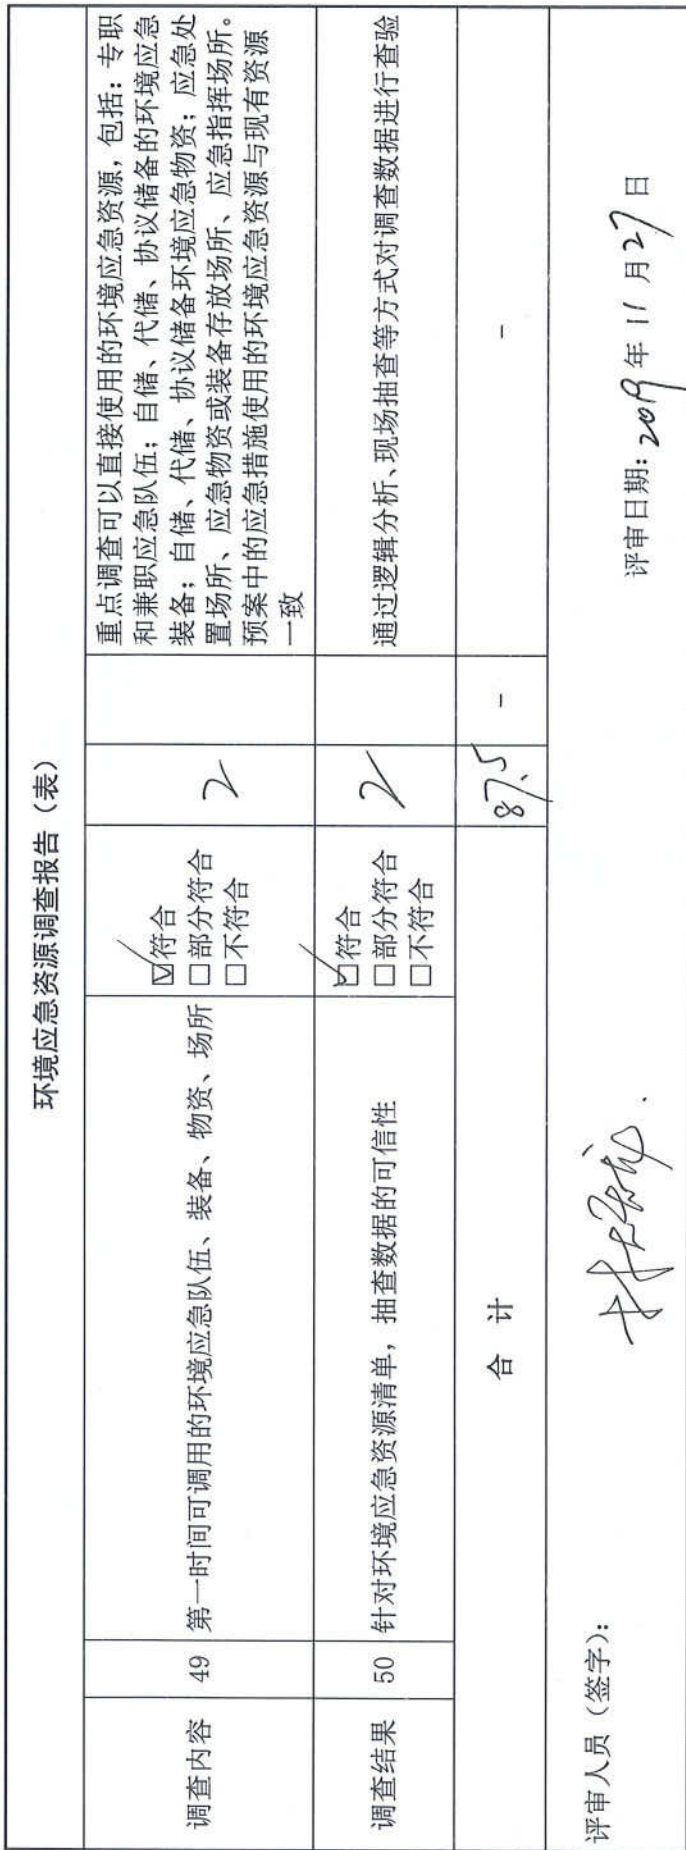 环境应急资源调查报告（表）
调查内容
49
第一时间可调用的环境应急队伍、装备、物资、场所
☑符合
□部分符合
□不符合
2
重点调查可以直接使用的环境应急资源，包括：专职
和兼职应急队伍；自储、代储、协议储备的环境应急
装备；自储、代储、协议储备环境应急物资；应急处
置场所、应急物资或装备存放场所、应急指挥场所。
预案中的应急措施使用的环境应急资源与现有资源
一致
调查结果
50
针对环境应急资源清单，抽查数据的可信性
☑符合
□部分符合
□不符合
2
通过逻辑分析、现场抽查等方式对调查数据进行查验
合 计
87.5
-
-
评审人员（签字）：
评审日期：2019年11月27日